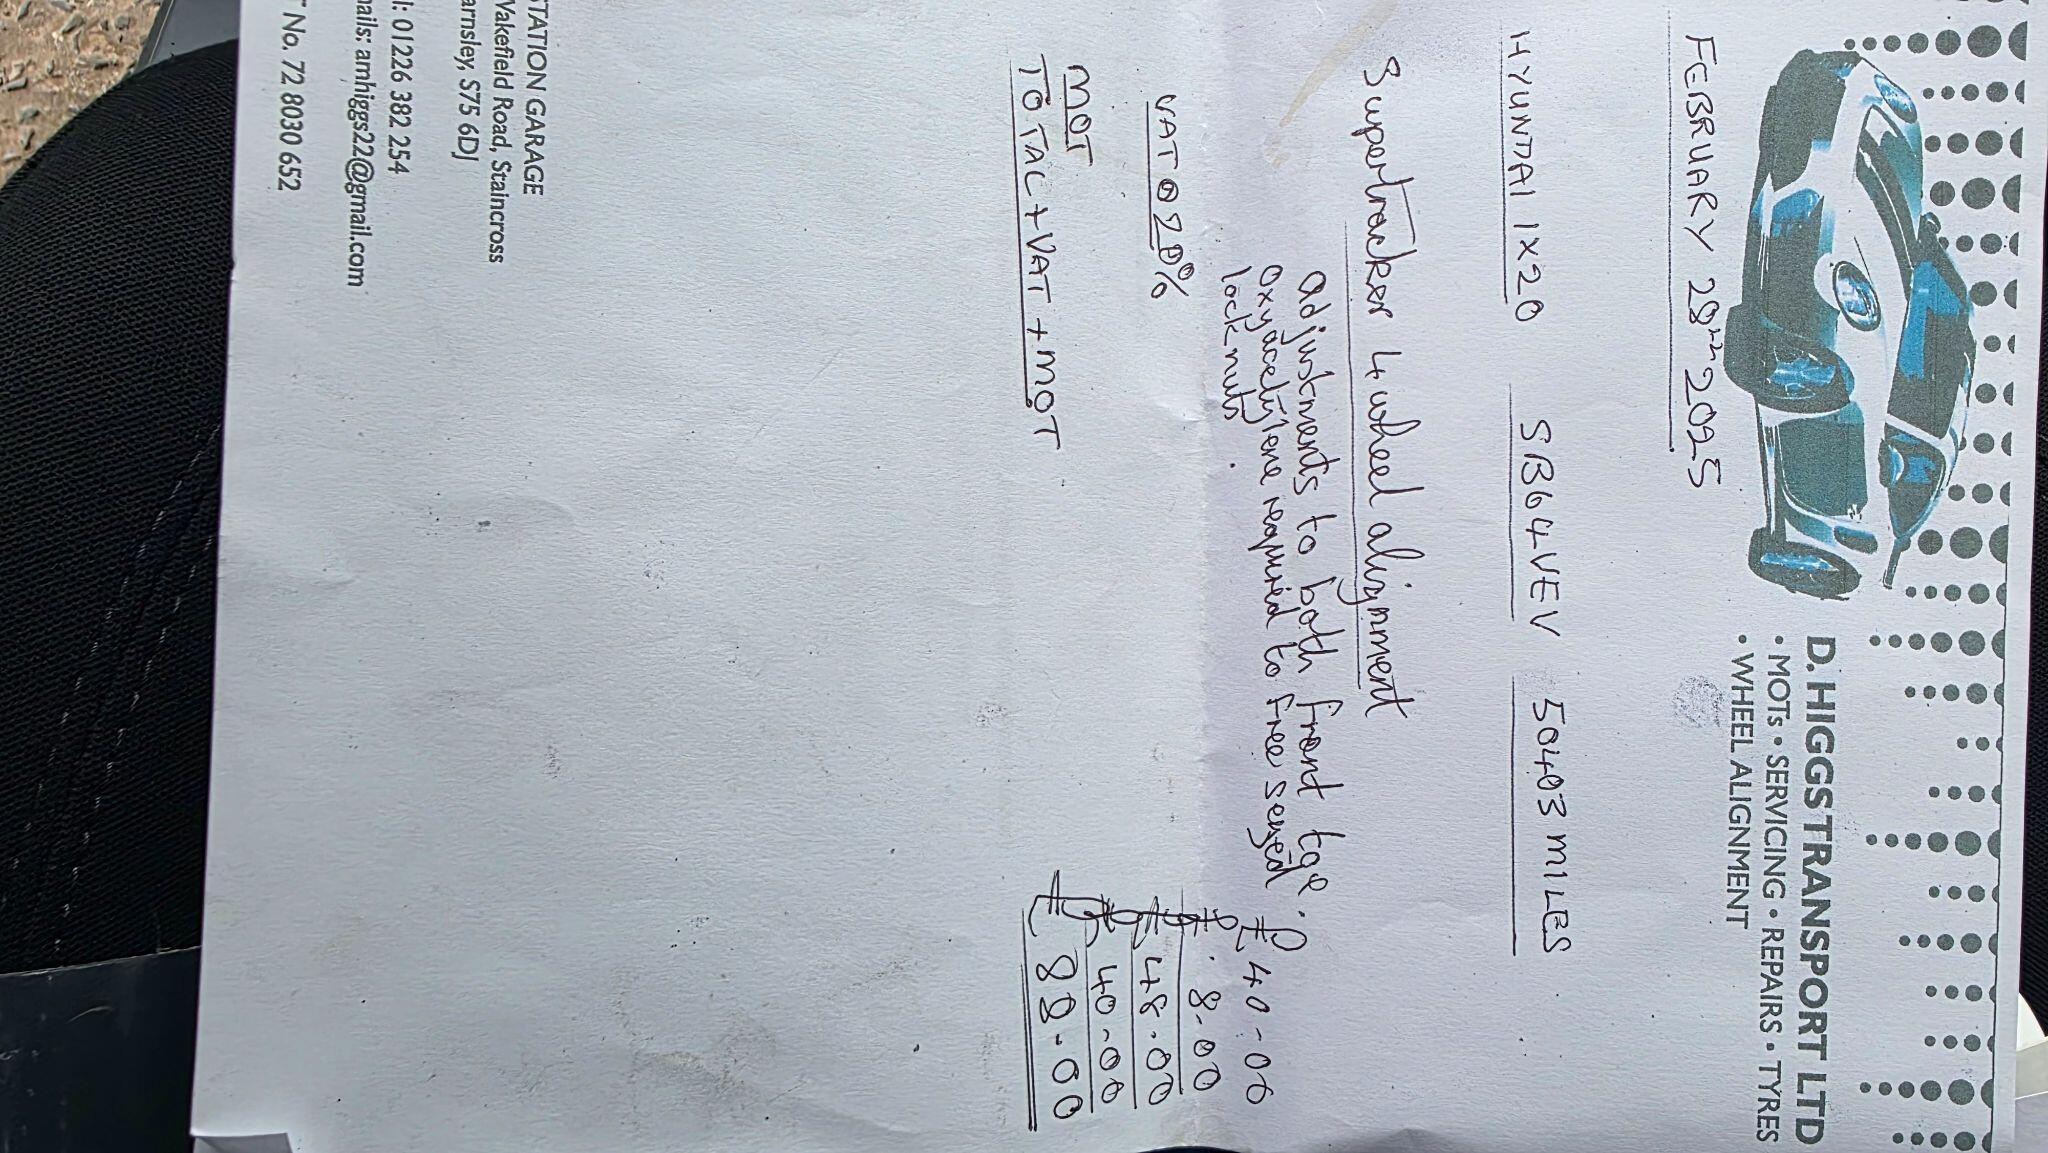 D. HIGGS TRANSPORT LTD
• MOTs • SERVICING • REPAIRS • TYRES
• WHEEL ALIGNMENT
FEBRUARY 28 2025
HYUNDAI IX20 SB64VEV 50403 MILES
Supertracker 4 wheel alignment
adjustments to both front toe.
oxyacetylene required to free seized
locknuts. £40-00
VAT @ 20% £8.00
£48.00
MOT £40-00
TOTAL + VAT + MOT £88-00
STATION GARAGE
Wakefield Road, Staincross
arnsley, S75 6DJ
l: 01226 382 254
ails: amhiggs22@gmail.com
T No. 72 8030 652